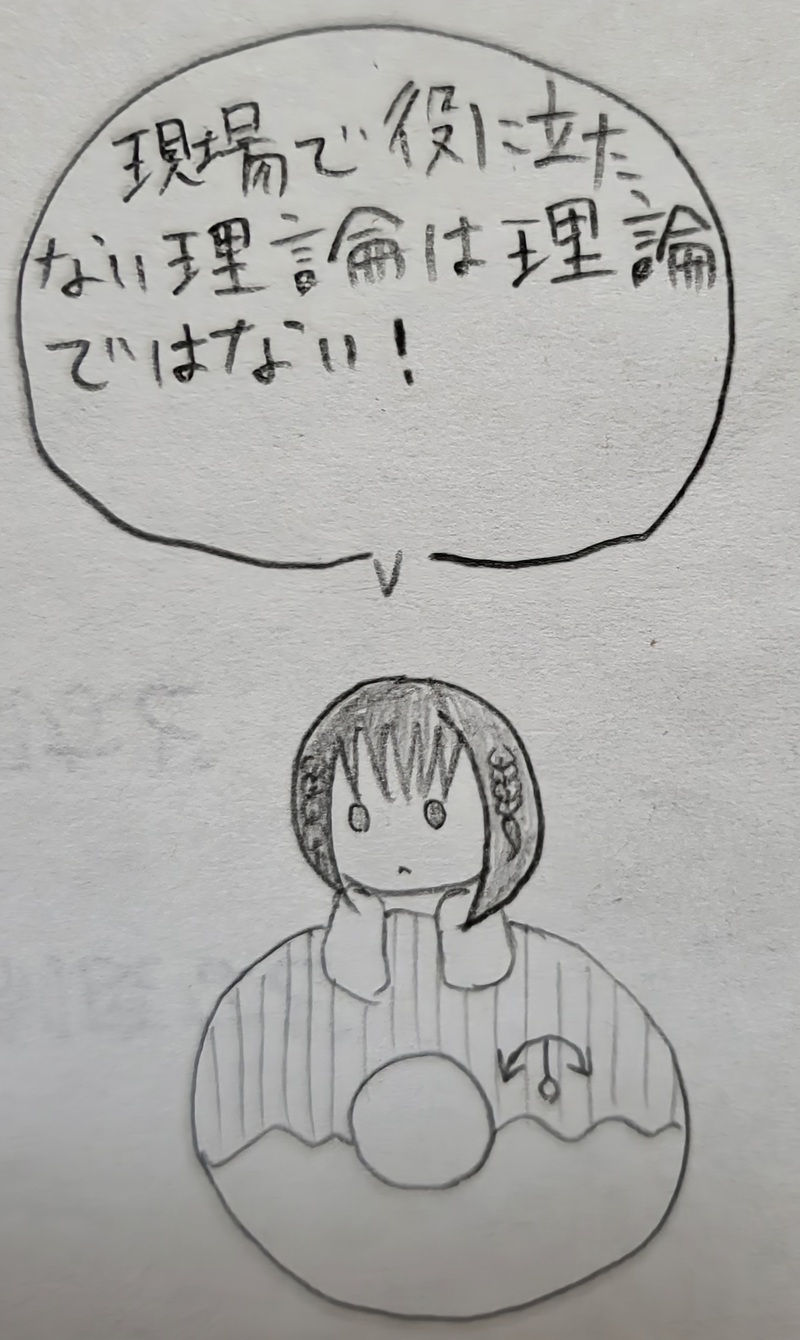 現場で役に立た
ない理論は理論
ではない!